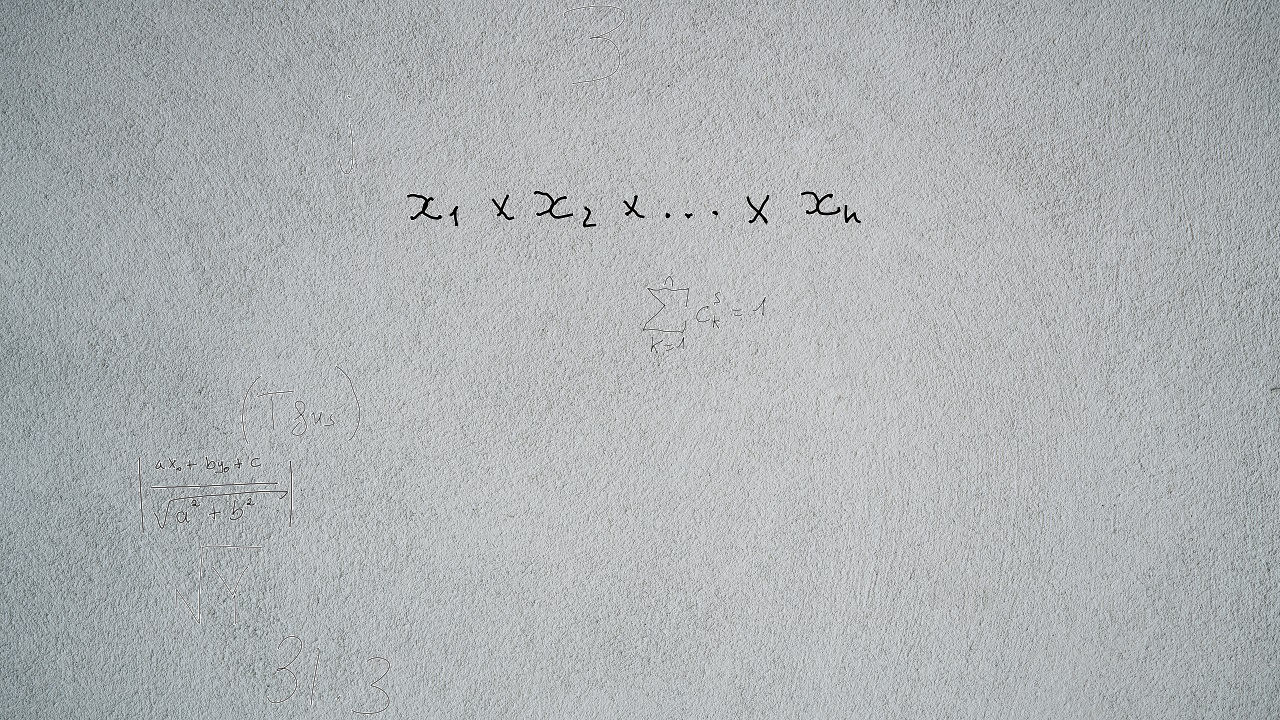 3
j
x₁ × x₂ × ... × xₙ
\sum_{k=1}^{n} c_k^s = 1
\left| \frac{ax_0 + by_0 + c}{\sqrt{a^2 + b^2}} \right|
\sqrt{Y}
31.3